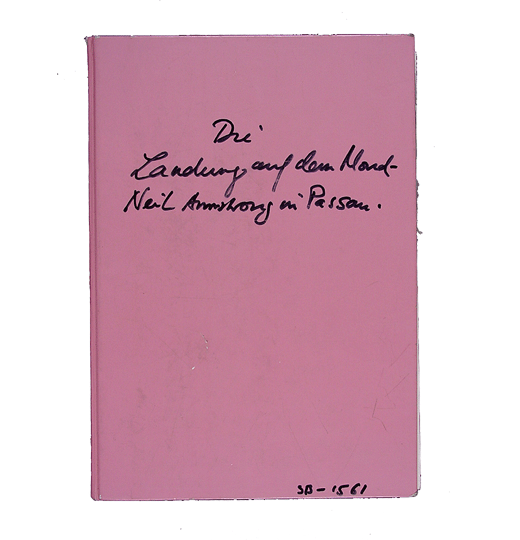 Die
Landung auf dem Mond-
Neil Armstrong in Passau.
SB-1561